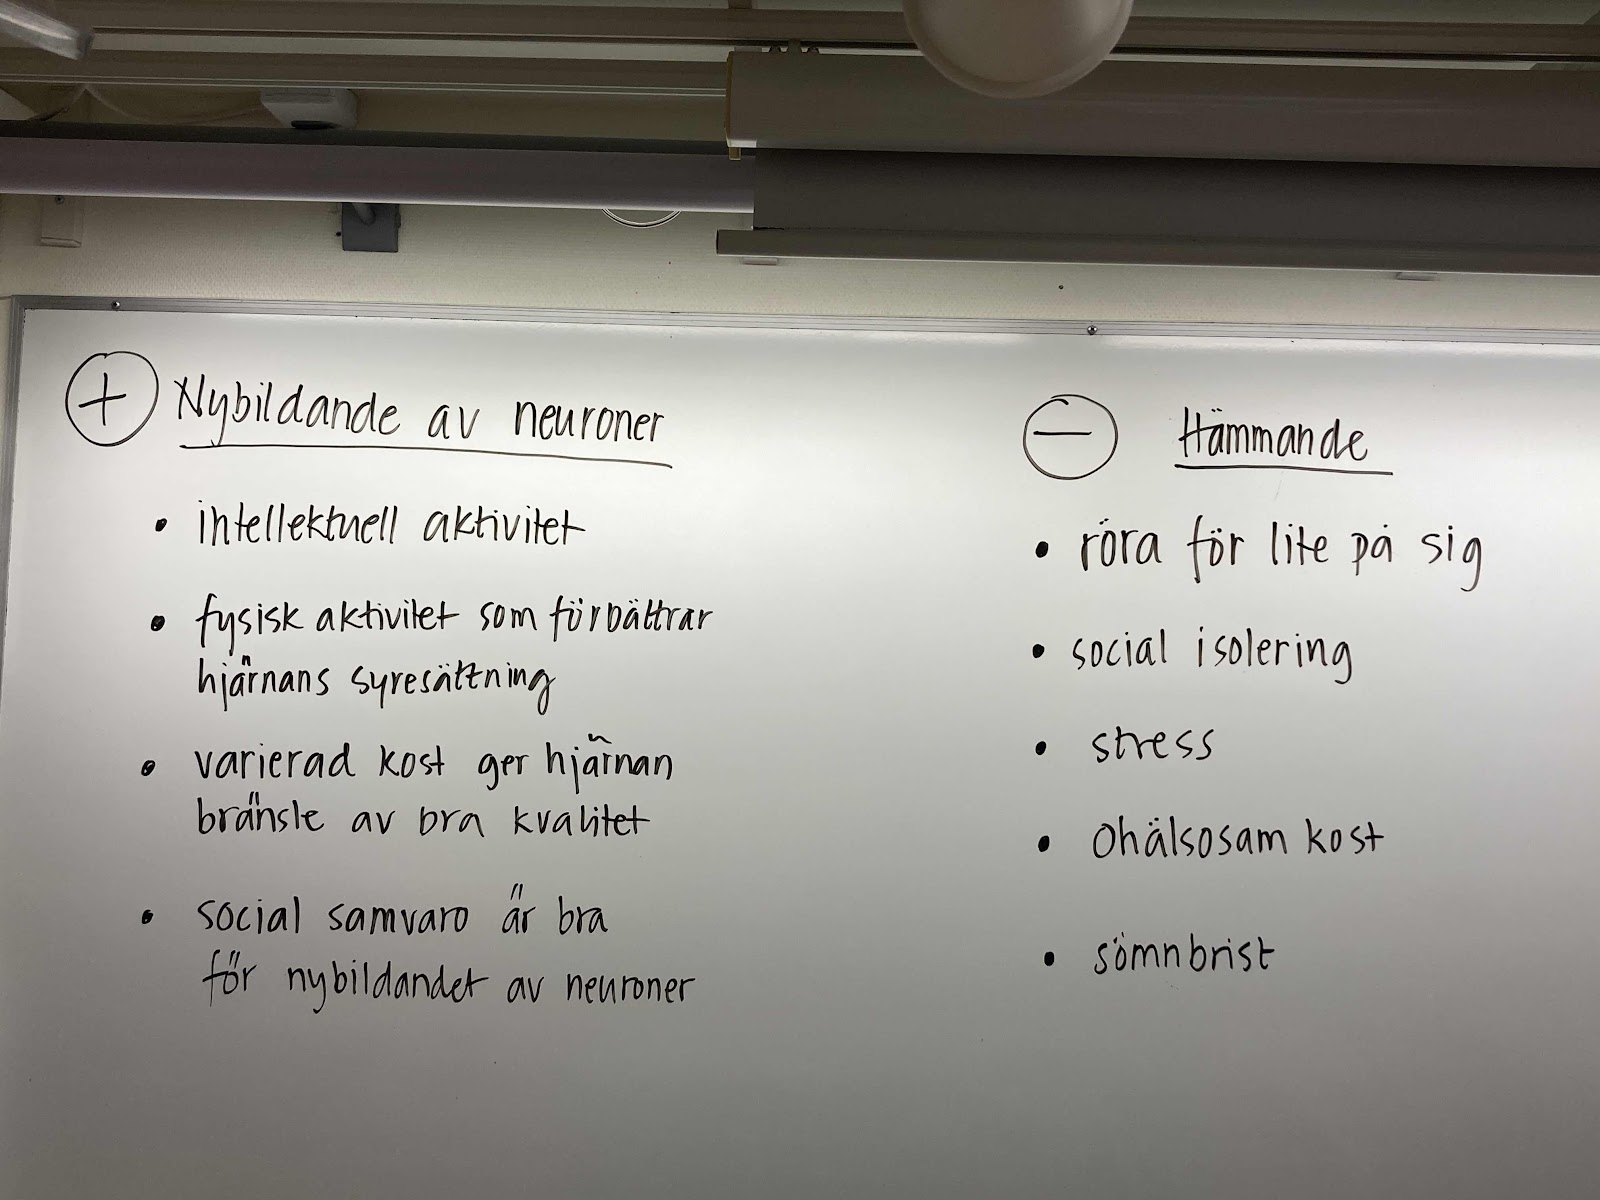 + Nybildande av neuroner
• intellektuell aktivitet
• fysisk aktivitet som förbättrar
hjärnans syresättning
• varierad kost ger hjärnan
bränsle av bra kvalitet
• social samvaro är bra
för nybildandet av neuroner
− Hämmande
• röra för lite på sig
• social isolering
• stress
• Ohälsosam kost
• sömnbrist